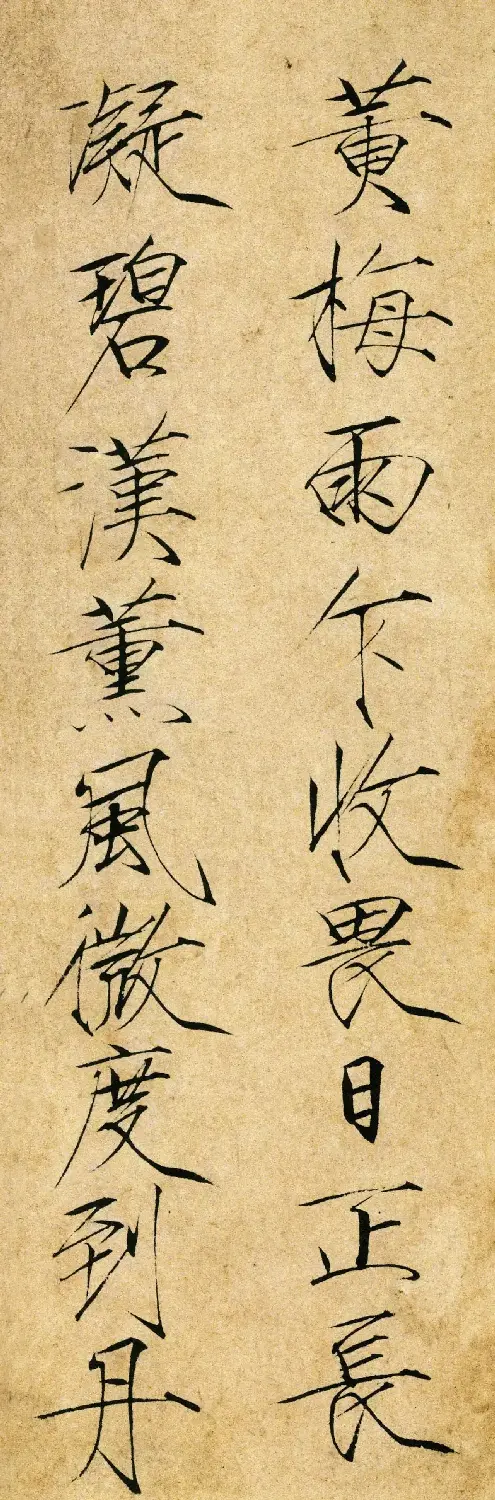 黄梅雨乍收畏日正長
凝碧漢薰風微度到丹